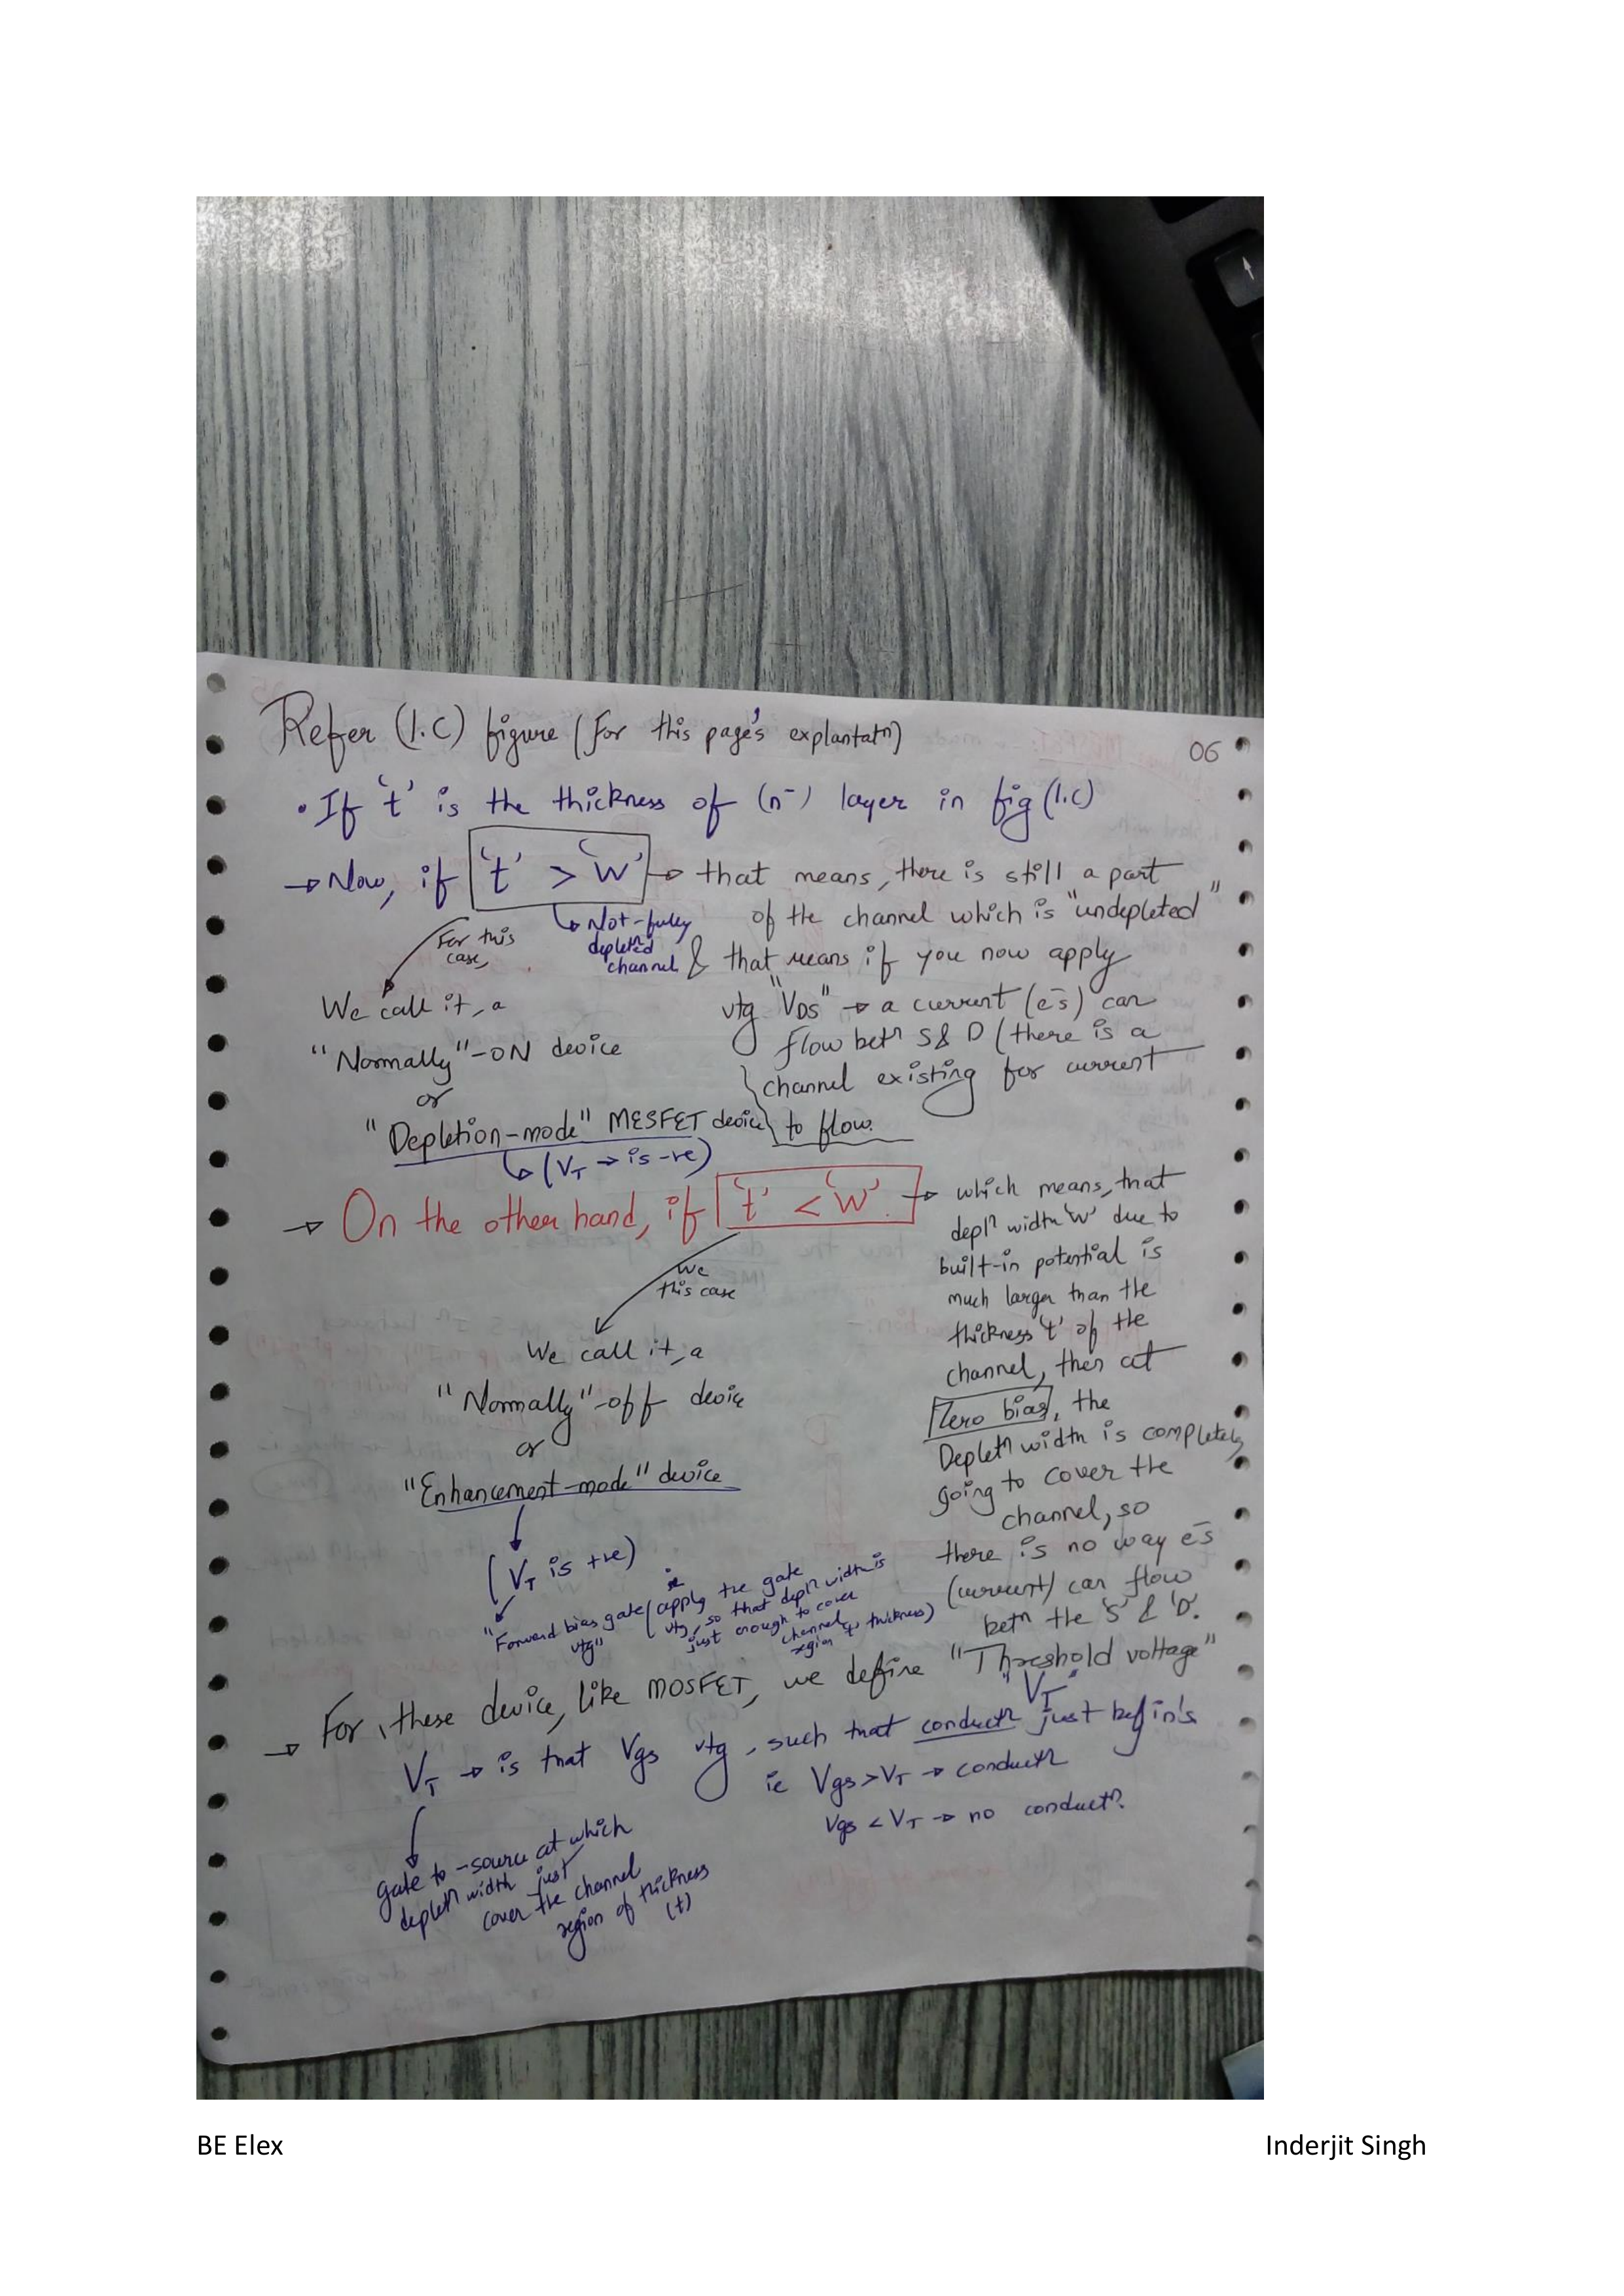 Refer (1.C) figure (For this page's explantatn)
06
• If 't' is the thickness of (n-) layer in fig (1.C)
→ Now, if 't' > 'W' → that means, there is still a part
of the channel which is "undepleted"
↳ Not-fully
depleted
channel
& that means if you now apply
vtg "VDS" → a current (e-s) can
flow betn S & D (there is a
channel existing for current
to flow.
For this
case,
We call it, a
"Normally"-ON device
or
"Depletion-mode" MESFET device
↳ (VT → is -ve)
→ On the other hand, if 't' < 'W'. → which means, that
depln width 'W' due to
built-in potential is
much larger than the
thickness 't' of the
channel, then at
Zero bias, the
Depletn width is completely
going to cover the
channel, so
there is no way e-s
(current) can flow
betn the 'S' & 'D'.
We
this case
We call it, a
"Normally"-off device
or
"Enhancement-mode" device
(VT is +ve)
"Forward bias gate
vtg"
(apply the gate
vtg, so that depln width is
just enough to cover
channel
region thickness)
→ For, these device, like MOSFET, we define "Threshold voltage"
"VT"
VT → is that Vgs vtg, such that conductn just befin's
ie Vgs > VT → conductn
Vgs < VT → no conductn.
gate to -source at which
depletn width just
cover the channel
region of thickness
(t)
BE Elex
Inderjit Singh